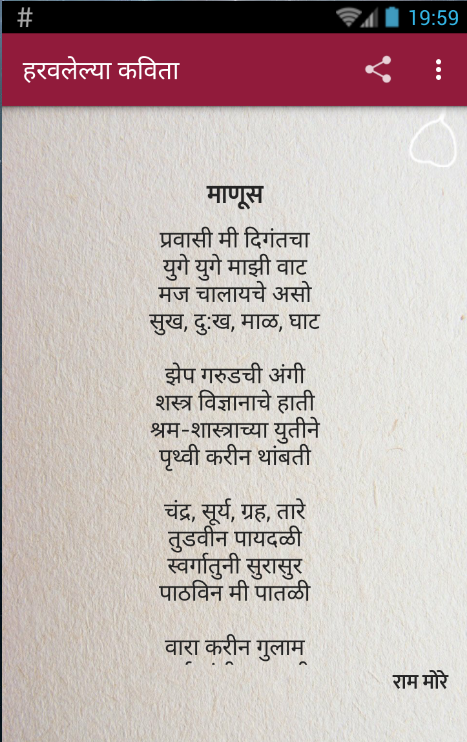 19:59
हरवलेल्या कविता
माणूस
प्रवासी मी दिगंतचा
युगे युगे माझी वाट
मज चालायचे असो
सुख, दु:ख, माळ, घाट
झेप गरुडची अंगी
शस्त्र विज्ञानाचे हाती
श्रम-शास्त्राच्या युतीने
पृथ्वी करीन थांबती
चंद्र, सूर्य, ग्रह, तारे
तुडवीन पायदळी
स्वर्गातुनी सुरासुर
पाठविन मी पातळी
वारा करीन गुलाम
राम मोरे